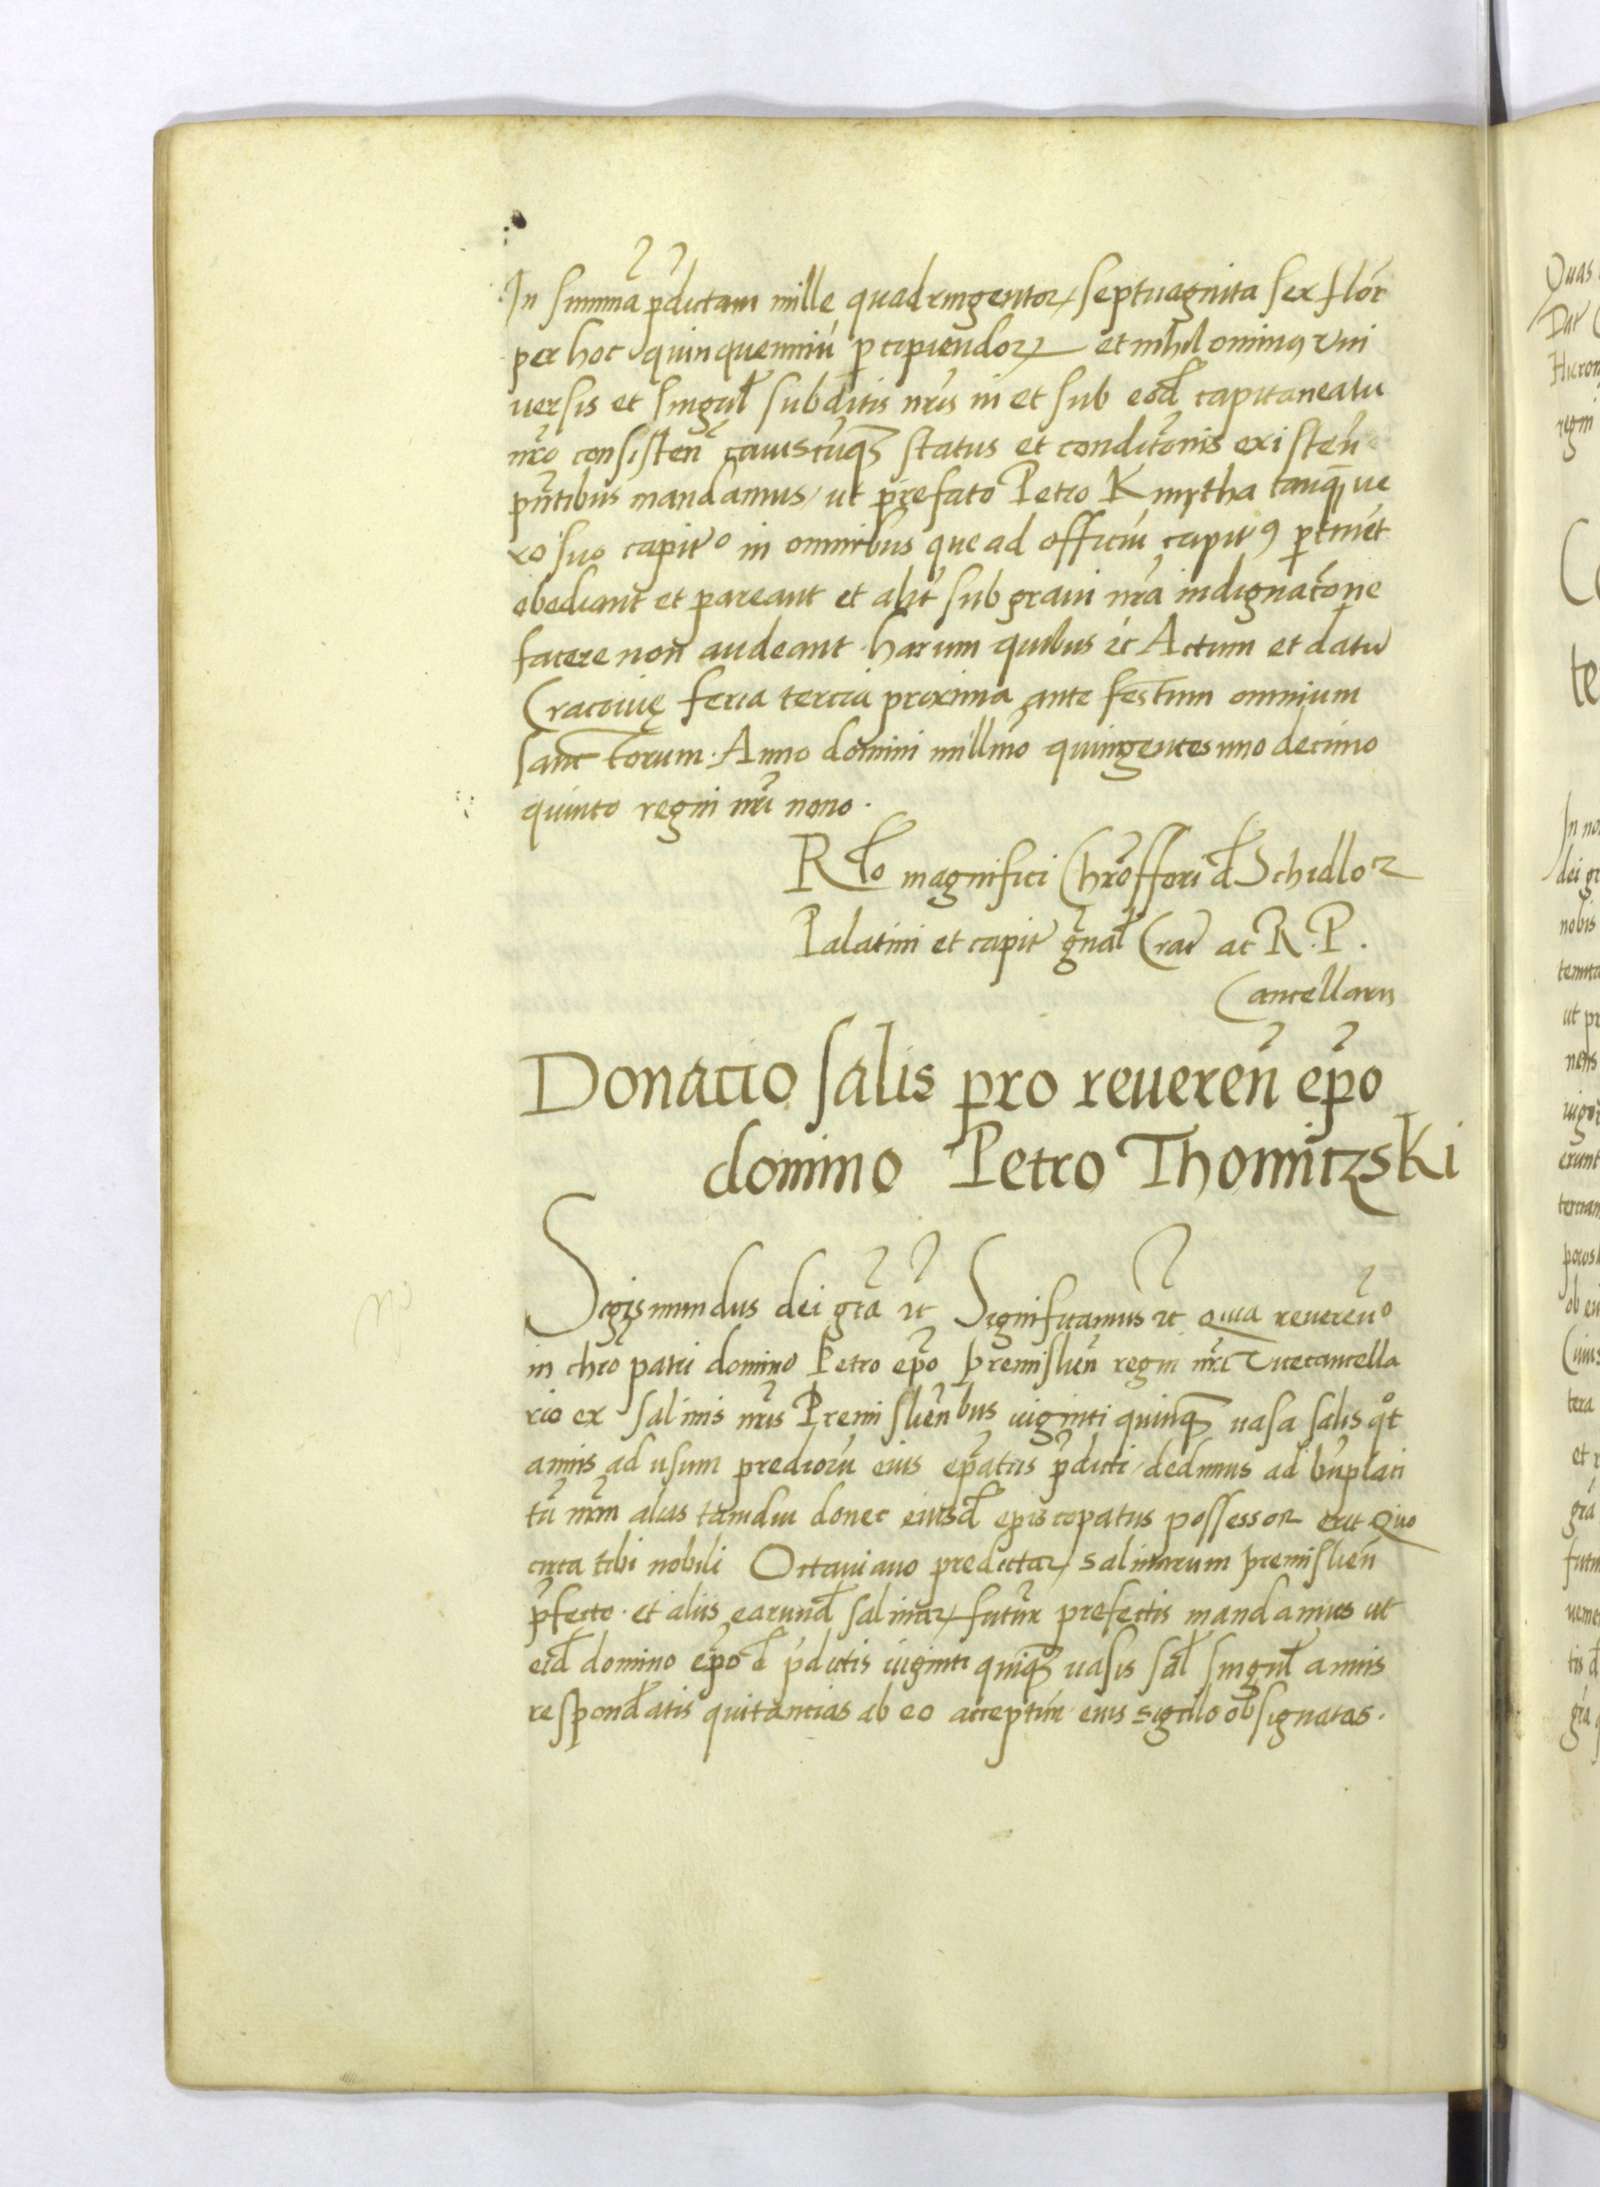 In summa p̄dictam mille quadringentoꝝ septuaginta sex flor̄
per hoc quinquenniū p̱cipiendoꝝ et nihilominꝰ vni
uersis et singul̄ subditis nr̄is in et sub eod̄ capitaneatu
nr̄o consisten̄ cuiuscūqꝫ status et condiit̄onis existen̄
pn̄tibus mandamus, ut prefato Petro Kmytha tanqꝫ ue
ro suo capit̄o in omnibus que ad officiū capitꝰ ꝑtinēt
obediant et pareant et alit̄ sub graui nr̄a indignat̄one
facere non audeant. harum quibus ꝛc Actum et datū
Cracouię feria tercia proxima ante festum omnium
sanctorum. Anno domini millm̄o quingentesimo decimo
quinto regni nr̄i nono.
Rl̄o magnifici Chrōfferi d̄ Schidlo
Palatini et capit̄ gn̄al̄ Crac̄ ac R. P.
Cancellarii
Donacio salis pro reueren̄ ep̄o
domino Petro Thomitzski
Sigismundus dei gr̄a ꝛc̄ Significamus ꝛc̄ Quia reueren̄o
in chr̄o patri domino Petro ep̄o premislien̄ regni nr̄i Vicecancella
rio ex salinis nr̄is Premislien̄bus uiginti quinqꝫ uasa salis qͦt
annis ad usum predioꝝ eius ep̄atus p̄dicti, dedimus ad bn̄placi
tū nr̄m alias tamdiu donec eiusd̄ episcopatus possessor erit Quo
circa tibi nobili Octauiano predictaꝝ salinarum premislien̄
p̄fecto. et aliis earund̄ salinaꝝ futur̄ prefectis mandamus ut
eid̄ domino ep̄o d̄ p̄dictis uiginti quinqꝫ uasis sal̄ singul̄ annis
respond̄atis quitancias ab eo accepturi eius sigillo obsignatas.